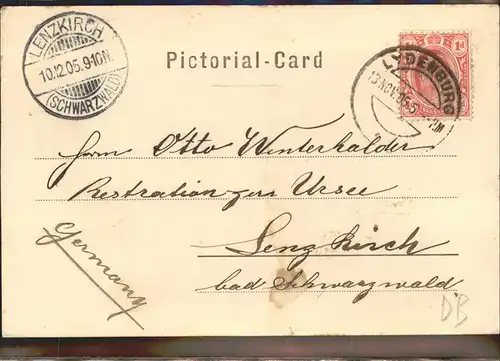 LENZKIRCH
10.12.05.9-10N.
(SCHWARZWALD)
Pictorial-Card
1d
LYDENBURG
13 NOV 05
PM
Herrn Otto Winterhalder
Restration zum Ursee
Lenzkirch
bad Schwarzwald
Germany
DB